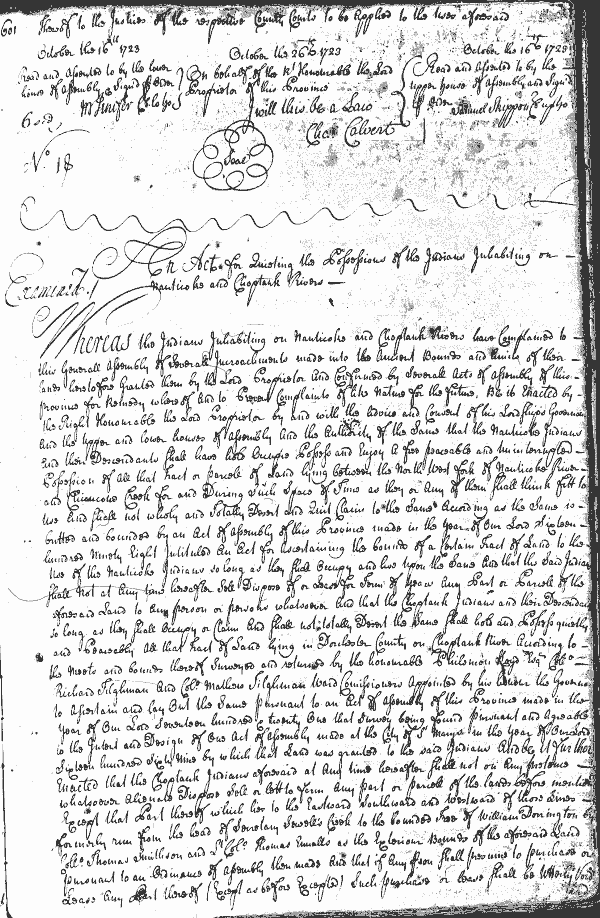 601 thereof to the Justices of the respective County Courts to be Applyed to the Uses aforesaid
October the 16th 1723
October the 26th 1723
October the 16th 1723
Read and Assented to by the lower
house of Assembly & Signd p Order
M Jenifer Cl lo ho
On behalf of the Rt Honourable the Lord
Proprietor of this Province
I will this be a Law
Chas Calvert
Read and Assented to by the
upper house of Assembly and Signd
p Order
Samuel Skippon Cl up ho
Seal
No 18
An Act for Quieting the Possessions of the Indians Inhabiting on
Nanticoke and Choptank Rivers
Examined
Whereas the Indians Inhabiting on Nanticoke and Choptank Rivers have Complained to
this Generall Assembly of Severall Incroachments made into the Ancient Bounds and Limits of their
lands heretofore Granted them by the Lord Proprietor And Confirmed by Severall Acts of Assembly of this
Province for Remedy whereof And to Prevent Complaints of like Nature for the Future, Be it Enacted by
the Right Honourable the Lord Proprietor by and with the Advice and Consent of his Lordships Governour
And the Upper and Lower houses of Assembly And the Authority of the Same that the Nanticoke Indians
And their Descendants Shall have hold Occupie Possess and Enjoy A free peaceable and Uninterrupted
Possession of All that Tract or Parcele of Land lying between the North West fork of Nanticoke River
and Chicucone Creek for and During Such Space of Time as they or Any of them Shall think fitt to
Use And Shall not wholly and Totally Desert and Quit Claim to the Same According as the Same is
butted and bounded by an Act of Assembly of this Province made in the Year of Our Lord Sixteen
hundred Ninety Eight Intituled An Act for Ascertaining the bounds of a Certain Tract of Land to the
Use of the Nanticoke Indians so long as they Shall Occupy and live upon the Same And that the Said Indians
Shall Not at Any time hereafter Sell Dispose of or Lease for Term of Years Any Part or Parcele of the
aforesaid Land to Any person or persons whatsoever And that the Choptank Indians and their Descendants
so long as they Shall Occupy or Claim And Shall not totally Desert the Same Shall hold and Possess quietly
and Peaceably All that Tract of Land lying in Dorchester County on Choptank River According to
the Meets and bounds thereof Surveyed and returned by the honourable Philemon Lloyd Esqr Collo
Richard Tilghman And Collo Mathew Tilghman Ward Comissioners Appointed by his Honour the Governour
to Ascertain and Lay Out the Same pursuant to an Act of Assembly of this Province made in the
Year of Our Lord Seventeen hundred & twenty One that Survey being found Pursuant and Agreeable
to the Intent and Design of One Act of Assembly made at the City of St Marys in the Year of Our Lord
Sixteen hundred Sixty Nine by which that Land was granted to the said Indians And be it further
Enacted that the Choptank Indians aforesaid at Any time hereafter Shall not on Any pretence
whatsoever Alienate Dispose Sell or lett to Term Any part or parcele of the lands before mentioned
Except that Part thereof which lies to the Eastward Southward and Westward of those Lines
formerly run from the head of Secretary Sewell's Creek to the bounded Tree of William Dorrington by
Collo Thomas Smithson and Lt Collo Thomas Ennalls as the Exteriour Bounds of the aforesaid Land
Pursuant to an Ordinance of Assembly then made And that if Any person Shall presume to purchase or
Lease Any Part thereof (Except as before Excepted) Such purchase or Lease Shall be Utterly Void